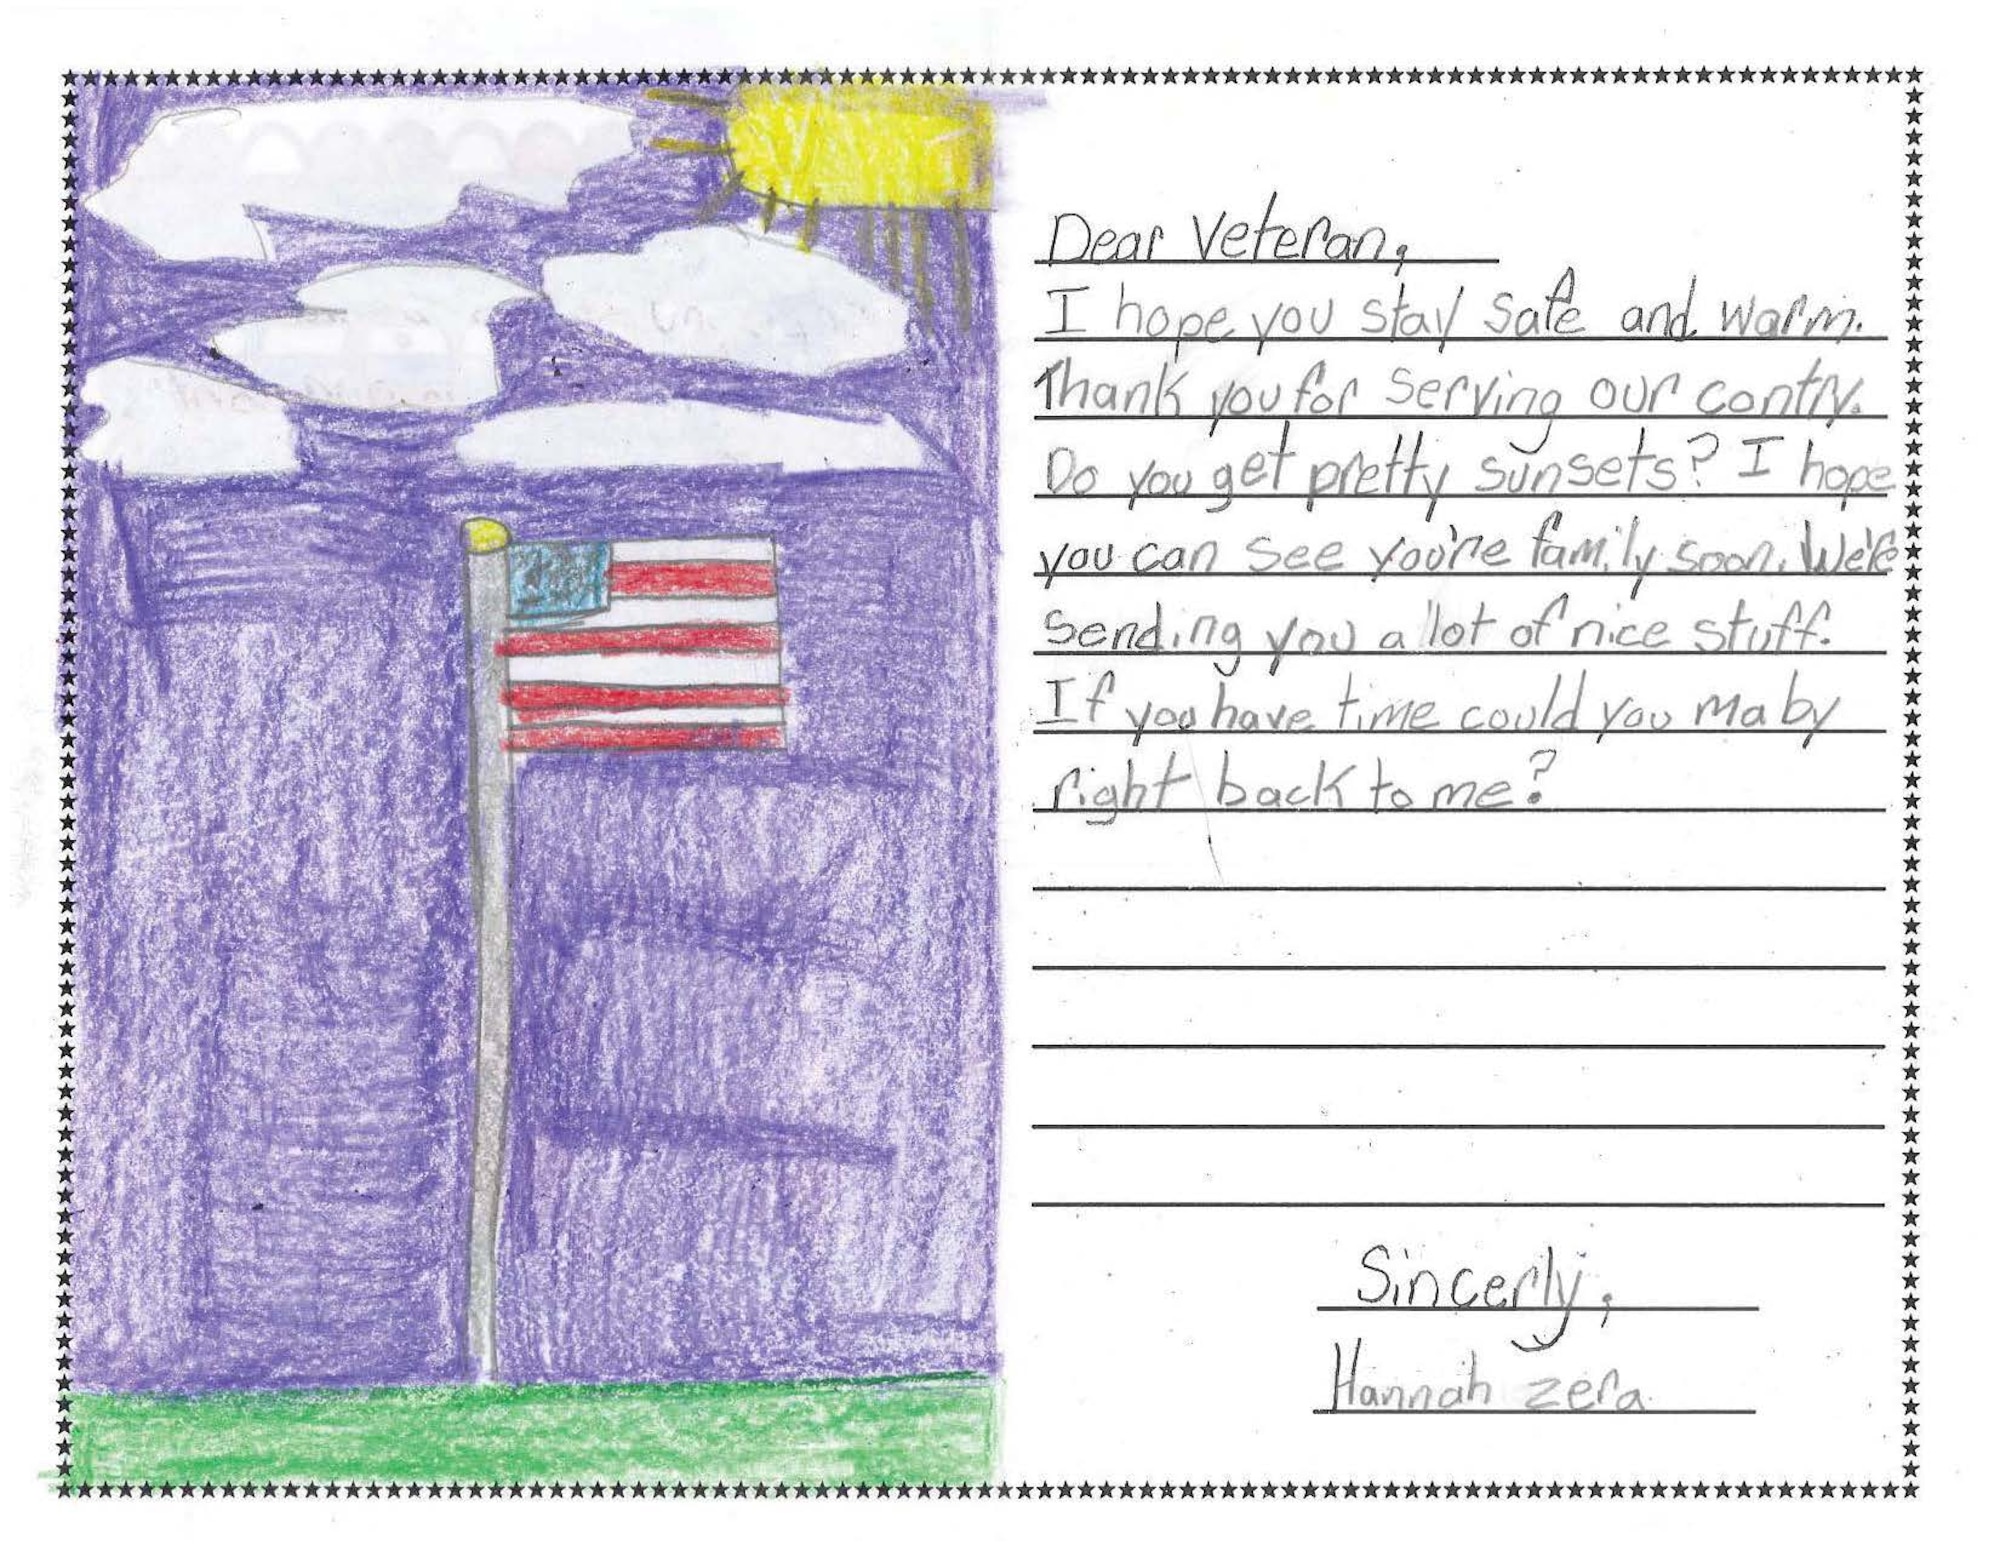 Dear Veteran,
I hope you stay safe and warm.
Thank you for serving our contry.
Do you get pretty sunsets? I hope
you can see you're family soon. We're
sending you a lot of nice stuff.
If you have time could you maby
right back to me?
Sincerly,
Hannah zera